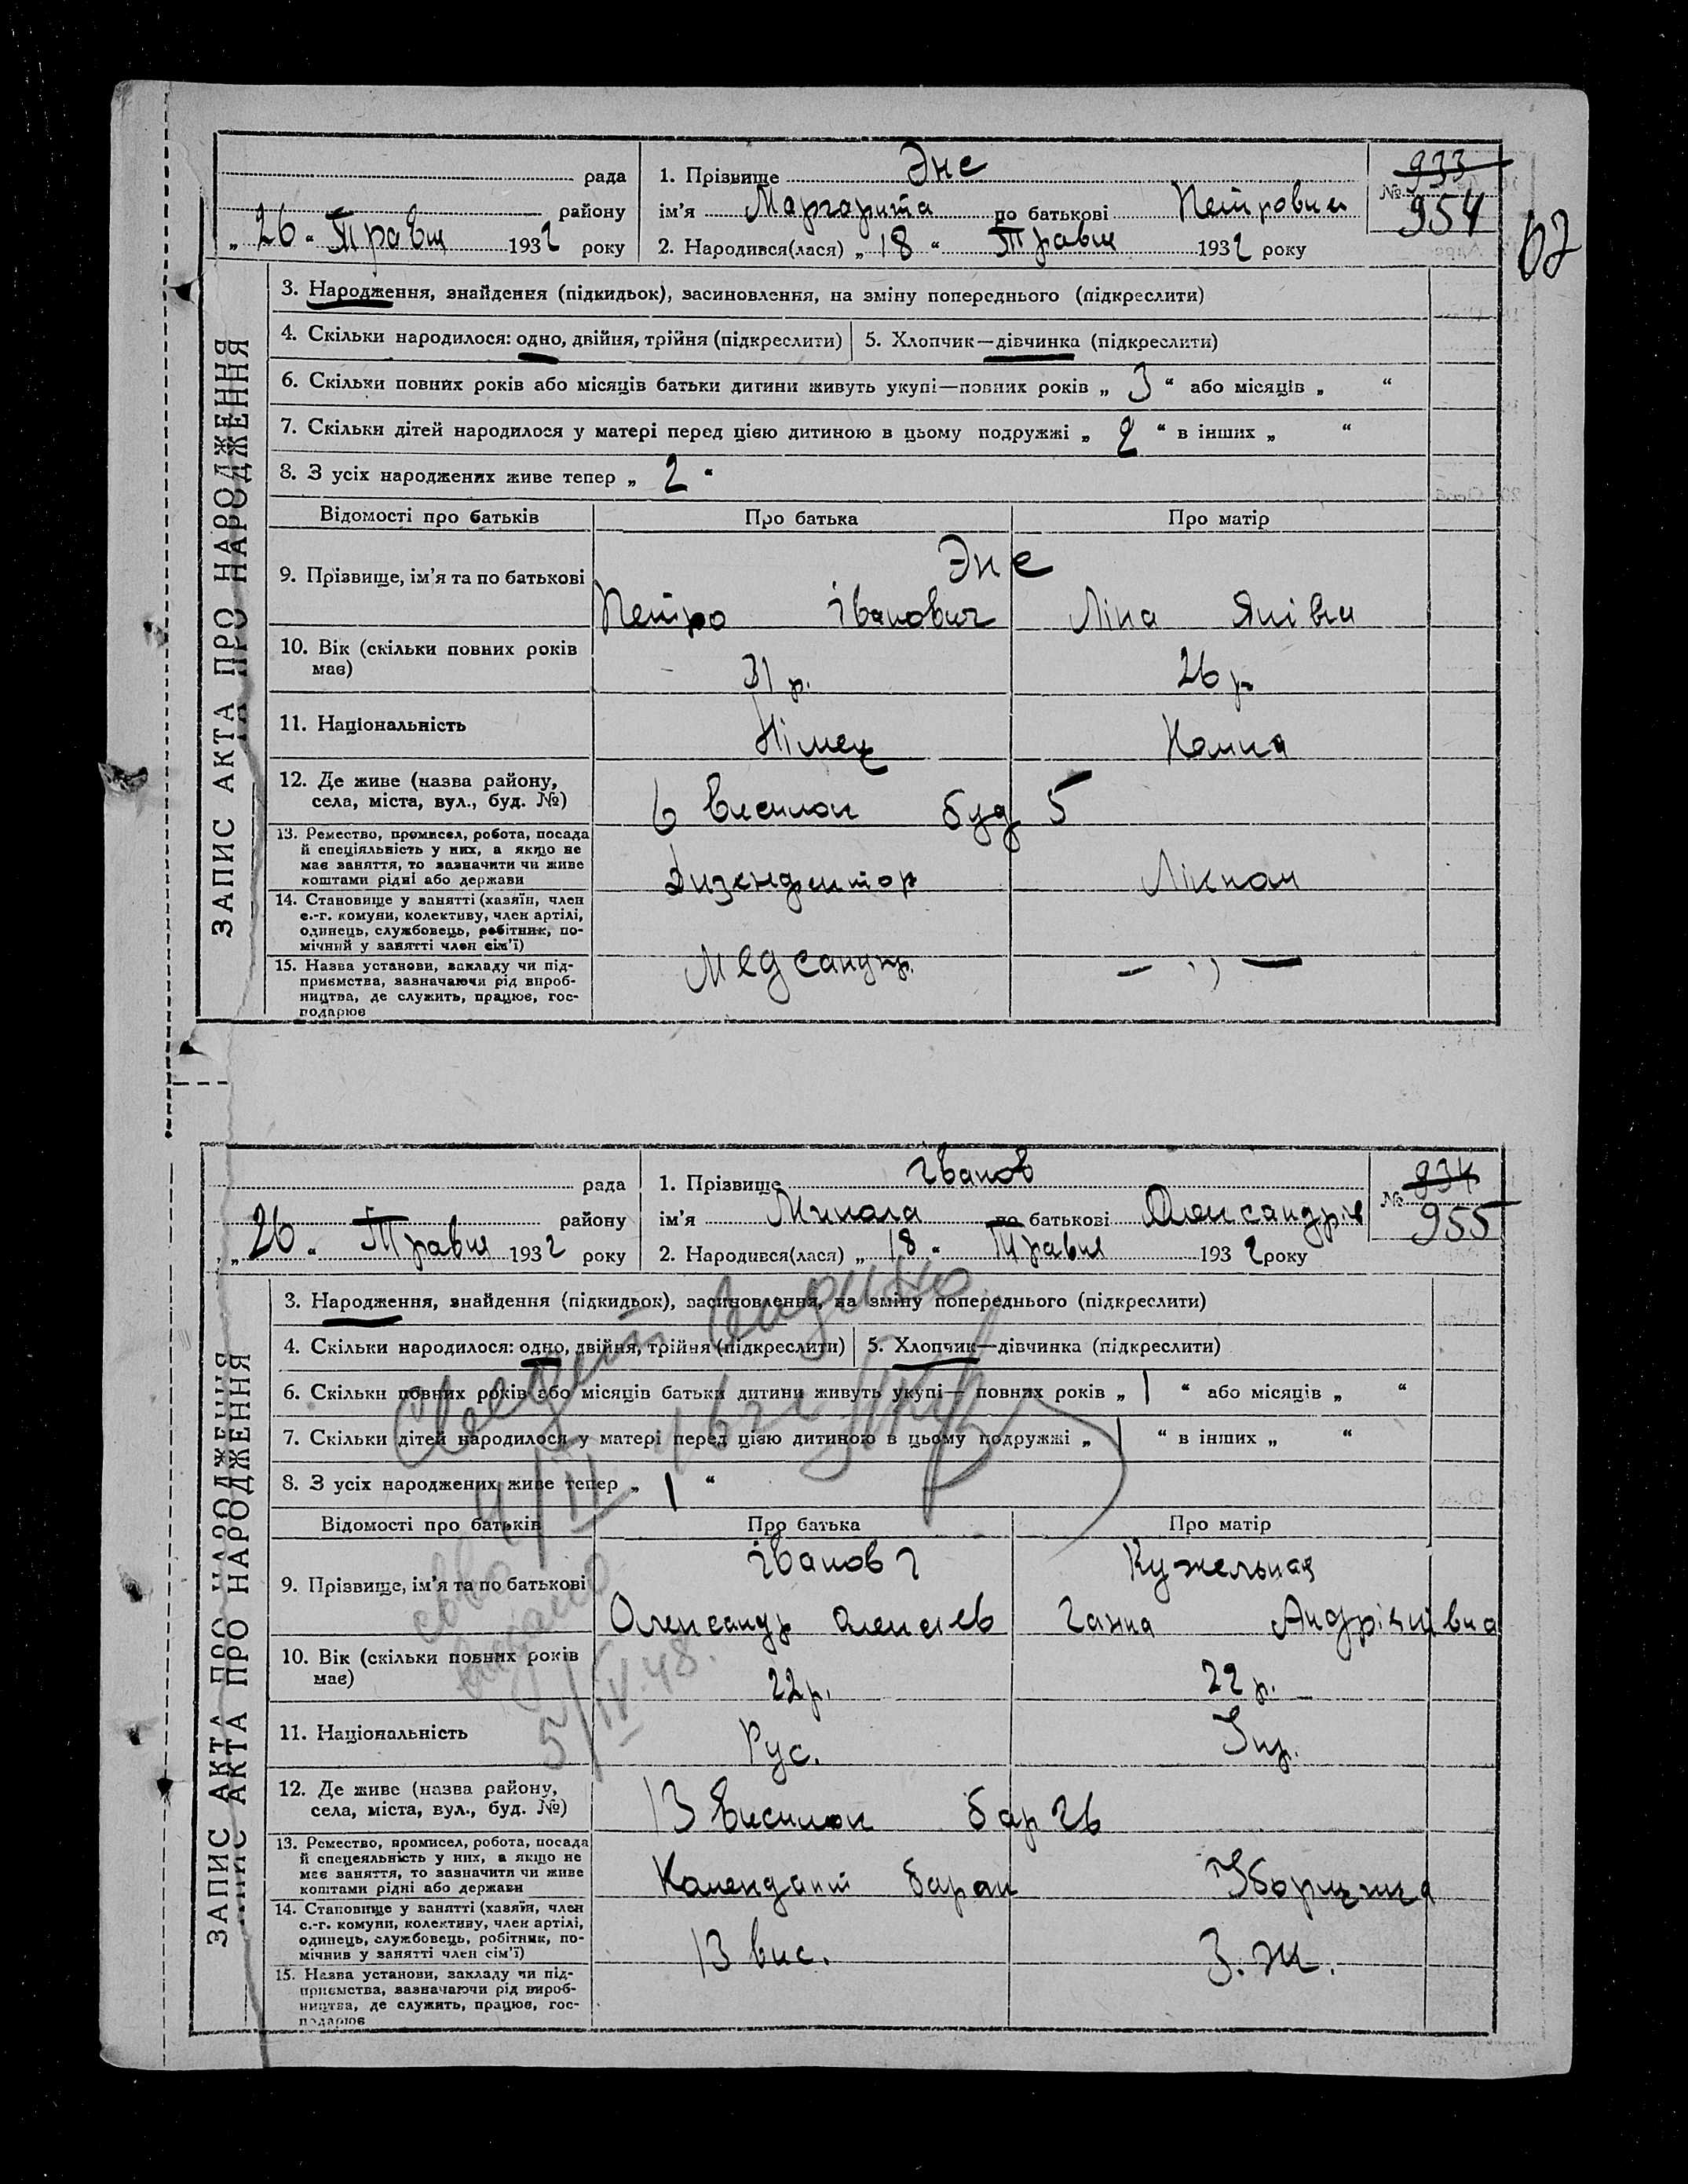 рада
району
„ 26 “ Травня 1932 року
1. Прізвище Энс
ім’я Маргарита по батькові Петровна
2. Народився(лася) „ 18 “ Травня 1932 року
№ 933
954
ЗАПИС АКТА ПРО НАРОДЖЕННЯ
3. Народження, знайдення (підкидьок), засиновлення, на зміну попереднього (підкреслити)
4. Скільки народилося: одно, двійня, трійня (підкреслити) 5. Хлопчик—дівчинка (підкреслити)
6. Скільки повних років або місяців батьки дитини живуть укупі—повних років „ 3 “ або місяців „ “
7. Скільки дітей народилося у матері перед цією дитиною в цьому подружжі „ 2 “ в інших „ “
8. З усіх народжених живе тепер „ 2 “
Відомості про батьків Про батька Про матір
Энс
9. Прізвище, ім’я та по батькові
Петро Іванович Ліна Яківна
10. Вік (скільки повних років
має)
31 р. 26 р.
11. Національність Німец Немка
12. Де живе (назва району,
села, міста, вул., буд. №)
6 висилок буд 5
13. Ремество, промисел, робота, посада
й спеціяльність у них, а якщо не
має заняття, то зазначити чи живе
коштами рідні або держави
Дизенфектор Лікпом
14. Становище у занятті (хазяїн, член
с.-г. комуни, колективу, член артілі,
одинець, службовець, робітник, по-
мічний у занятті член сім’ї)
15. Назва установи, закладу чи під-
приємства, зазначаючи рід вироб-
ництва, де служить, працює, гос-
подарює
Медсанупр. — ,, —
рада
району
„ 26 “ Травня 1932 року
1. Прізвище Іванов
ім’я Микола по батькові Олександрів
2. Народився(лася) „ 18 “ Травня 1932 року
№ 934
955
ЗАПИС АКТА ПРО НАРОДЖЕННЯ
3. Народження, знайдення (підкидьок), засиновлення, на зміну попереднього (підкреслити)
4. Скільки народилося: одно, двійня, трійня (підкреслити) 5. Хлопчик—дівчинка (підкреслити)
6. Скільки повних років або місяців батьки дитини живуть укупі— повних років „ 1 “ або місяців „ “
7. Скільки дітей народилося у матері перед цією дитиною в цьому подружжі „ 1 “ в інших „ “
8. З усіх народжених живе тепер „ 1 “
Відомості про батьків Про батька Про матір
Іванов Кужельная
9. Прізвище, ім’я та по батькові
Олександр Олексіев Ганна Андріївна
видано
5/IV 48.
10. Вік (скільки повних років
має)
22 р. 22 р.
11. Національність Рус. Укр.
12. Де живе (назва району,
села, міста, вул., буд. №)
13 висилок бар 26
13. Ремество, промисел, робота, посада
й спецеяльність у них, а якщо не
має заняття, то зазначити чи живе
коштами рідні або держави
Комендант барак Уборщица
14. Становище у занятті (хазяїн, член
с.-г. комуни, колективу, член артілі,
одинець, службовець, робітник, по-
мічнив у занятті член сім’ї)
13 вис. З. Ж.
15. Назва установи, закладу чи під-
приємства, зазначаючи рід вироб-
ництва, де служить, працює, гос-
подарює